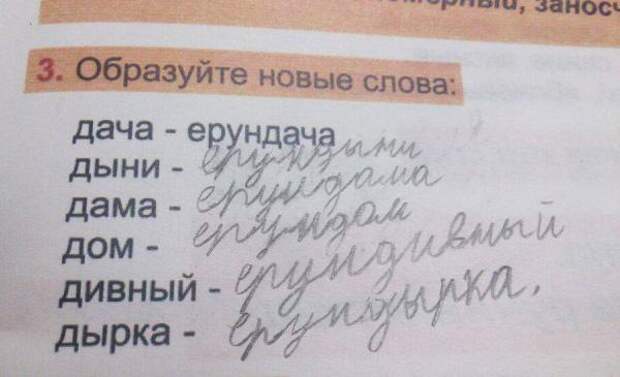 номерный, заносч
3. Образуйте новые слова:
дача - ерундача
дыни - ерундыни
дама - ерундама
дом - ерундом
дивный - ерундивный
дырка - ерундырка.